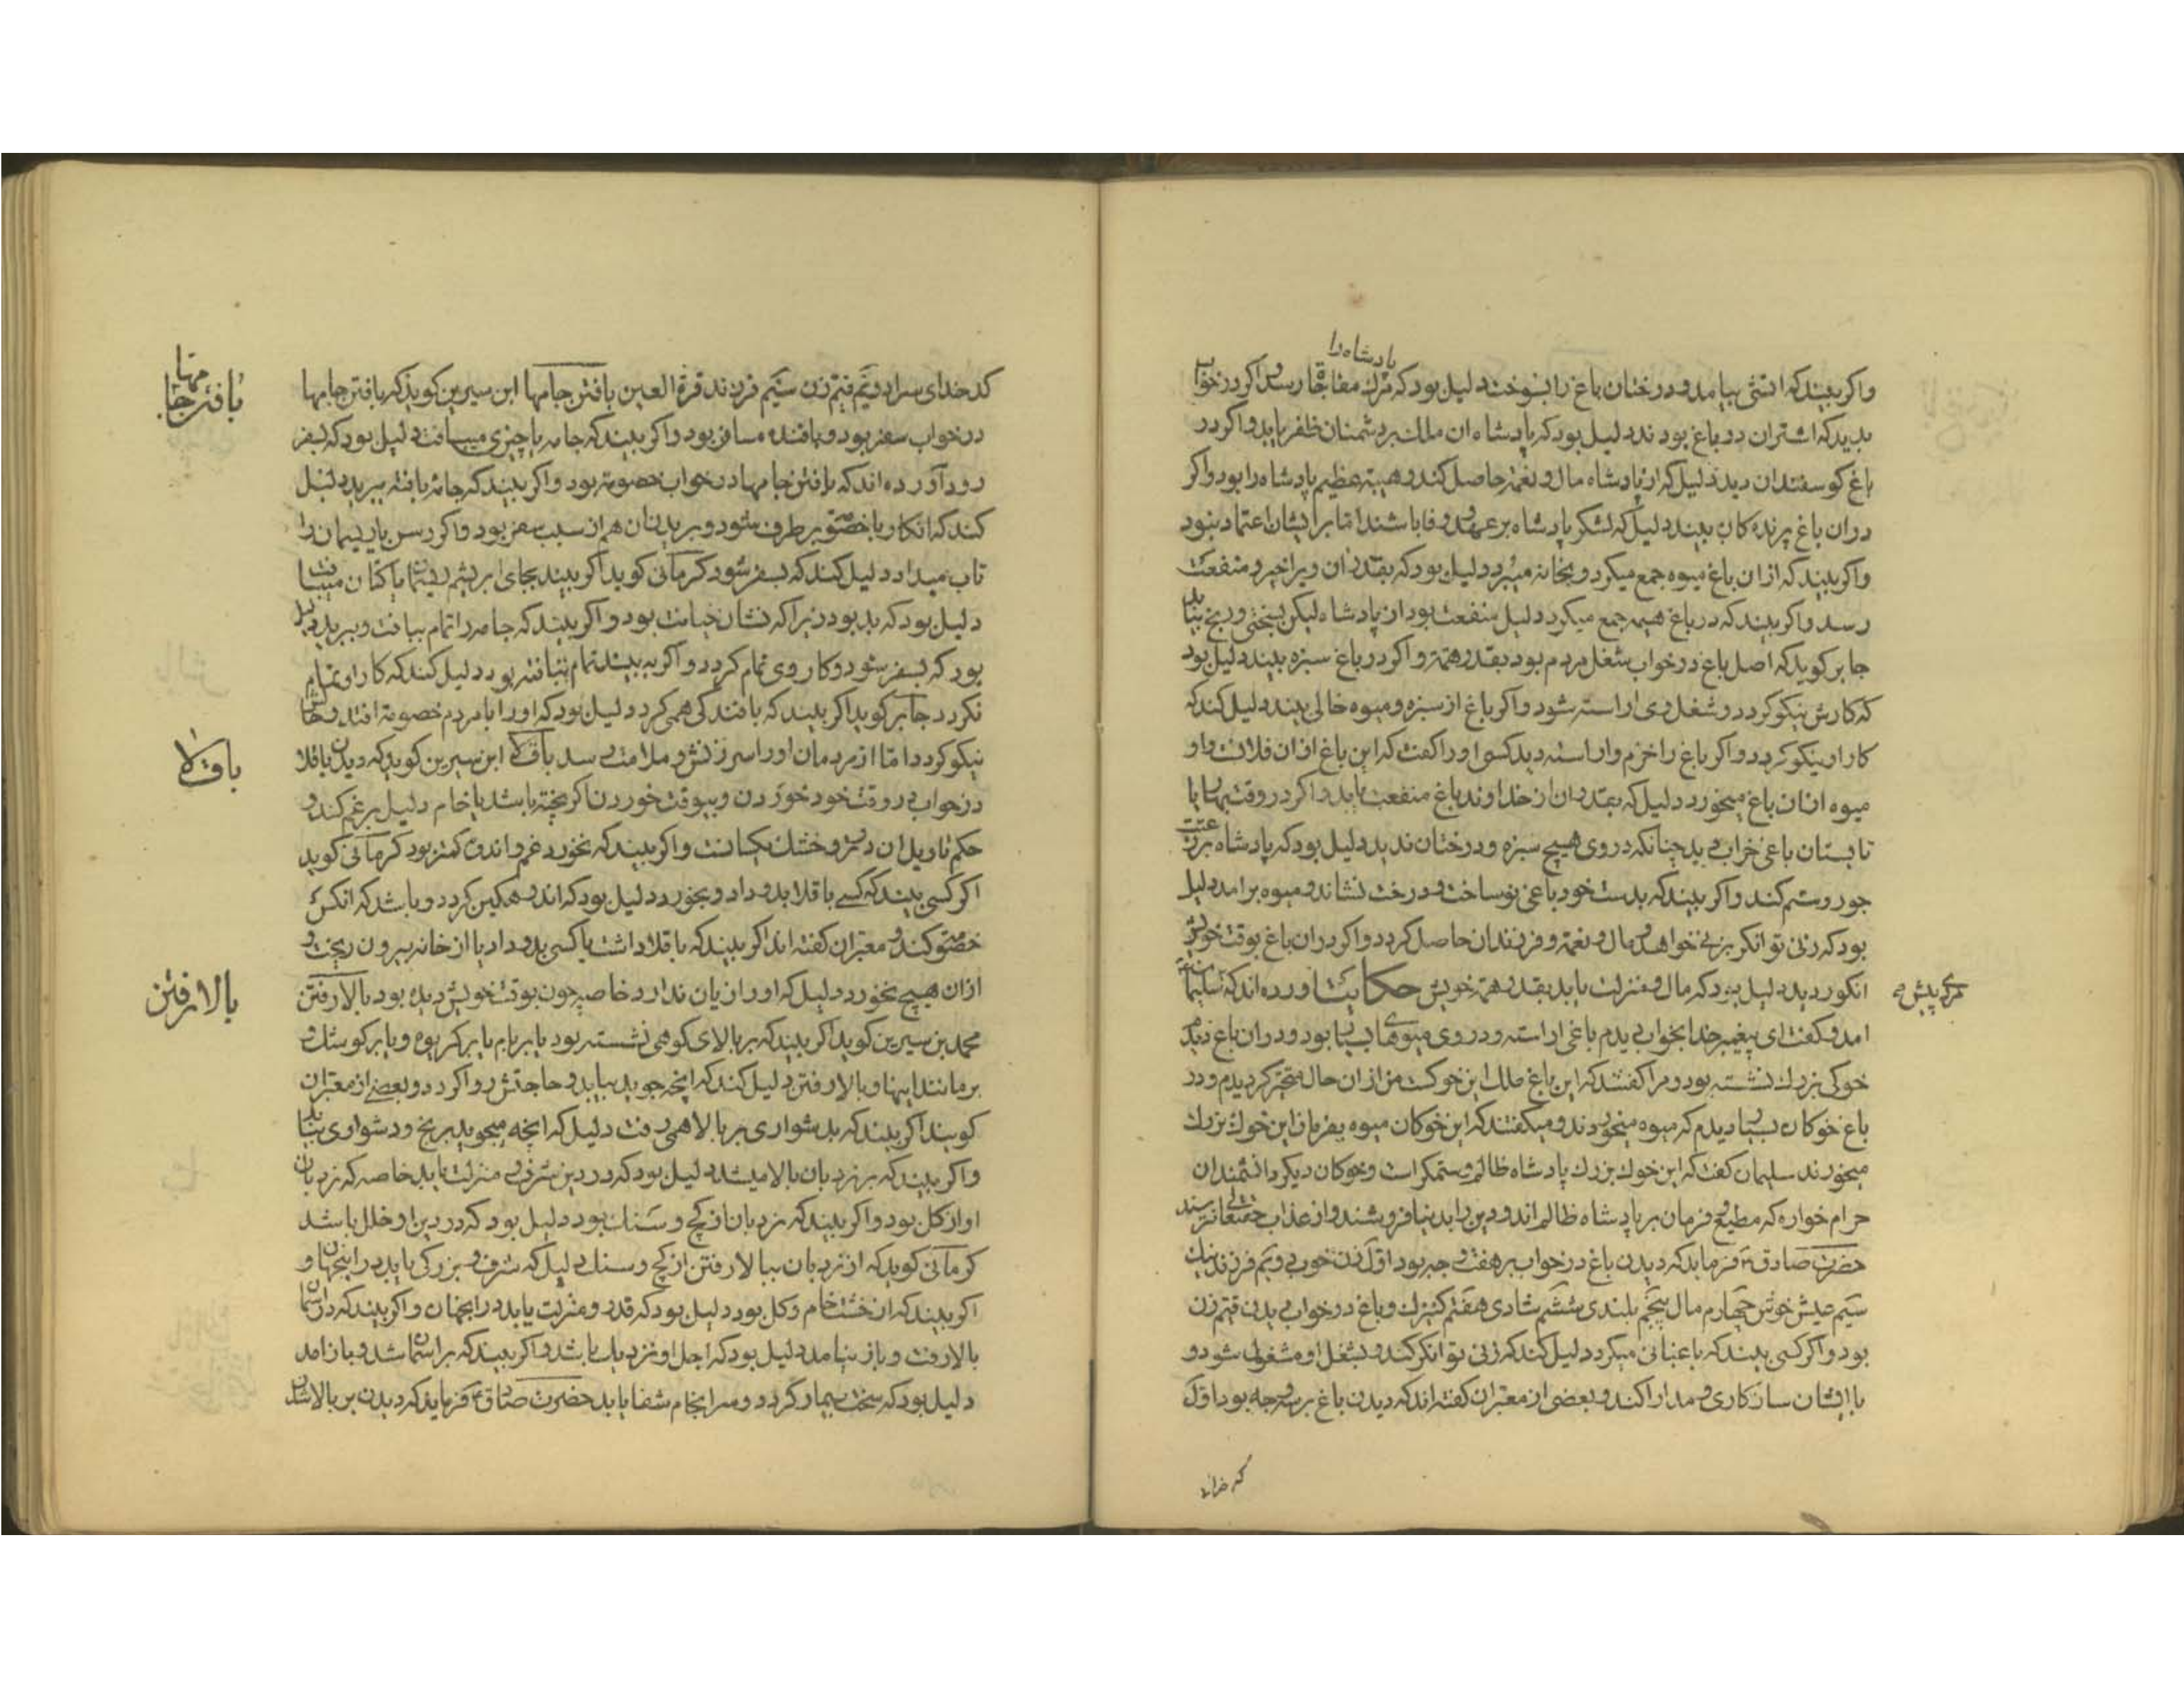 پادشاه را
واکر بیند که اتشی بیامد و درختان باغ را بسوخت دلیل بود که مرک مفاجاة رسد و اکر در خواب
بدید که اشتران در باغ بودند دلیل بود که پادشاه ان ملک بر دشمنان ظفر یابد و اکر در
باغ کوسفندان دید دلیل که از پادشاه مال و نعمة حاصل کند و هیبة عظیم پادشاه را بود واکر
در ان باغ پرنده کان بیند دلیل که لشکر پادشاه بر عهد و وفا باشند اما بر ایشان اعتماد نبود
واکر بیند که از ان باغ میوه جمع میکرد و بخانه میبرد دلیل بود که بقدر ان ویرا خیر و منفعت
رسد واکر بیند که در باغ هیمه جمع میکرد دلیل منفعت بود از پادشاه لیکن بسختی و رنج بیابد
جابر کوید که اصل باغ در خواب شغل مردم بود بقدر همة و اکر در باغ سبزه بیند دلیل بود
که کارش نیکو کردد و شغل وی اراسته شود واکر باغ از سبزه و میوه خالی بیند دلیل کند که
کار او نیکو نکردد واکر باغ را خرم واراسته دید کسی اورا کفت که این باغ از ان فلانست واو
میوه از ان باغ میخورد دلیل که بقدر ان از خداوند باغ منفعت یابد واکر در وقت بهار یا
تابستان باغی خراب دید چنانکه در وی هیچ سبزه و درختان ندید دلیل بود که پادشاه بر رعیت
جور و ستم کند واکر بیند که بدست خود باغی نو ساخت و درخت نشاند و میوه برامد دلیل
بود که زنی توانکر بزنی خواهد و مال و نعمة و فرزندان حاصل کردد واکر در ان باغ بوقت خویش
انکور دید دلیل بود که مال و منزلت یابد بقدر همة خویش حکایت اورده اند که سلیمان
مردی پیش
امد و کفت ای پیغمبر خدا بخواب دیدم باغی اراسته و در وی میوهای بسیار بود و در ان باغ دیدم
خوکی بزرک نشسته بود و مرا کفتند که این باغ ملک این خوکست من از ان حال متحیر کردیدم و در
باغ خوکان بسیار دیدم که میوه میخوردند و میکفتند که این خوکان میوه بفرمان این خوک بزرک
میخورند سلیمان کفت که این خوک بزرک پادشاه ظالم و ستمکر است و خوکان دیکر دانشمندان
حرام خواره که مطیع و فرمان بر پادشاه ظالم اند و دین را بدنیا فروشند و از عذاب حقتعالی نترسند
حضرت صادق فرماید که دیدن باغ در خواب بر هفت وجه بود اول زن خوب دویم فرزند نیک
سیم عیش خوش چهارم مال پنجم بلندی ششم شادی هفتم کنیزک و باغ در خواب دیدن قیم زن
بود واکر کسی بیند که باغبانی میکرد دلیل کند که زنی توانکر کند و بشغل او مشغول شود و
با ایشان سازکاری و مدارا کند و بعضی از معبران کفته اند که دیدن باغ بر سه وجه بود اول
کدخدای سرا دویم قیم زن سیم فرزند قرة العین بافتن جامها ابن سیرین کوید که بافتن جامها
بافتن جامها
در خواب سفر بود و بافنده مسافر بود واکر بیند که جامه یا چیزی میبافت دلیل بود که بسفر
رود آورده اند که بافتن جامها در خواب خصومة بود واکر بیند که جامۀ بافته ببرید دلیل
کند که انکار با خصومت بر طرف شود و بریدن ان هم از سبب سفر بود واکر رسن یا ریسمان را
تاب میداد دلیل کند که بسفر شود کرمانی کوید اکر بیند بجای ابریشم ریسمان یا کتان میبافت
دلیل بود که بد بود زیرا که نشان خیانت بود واکر بیند که جامه را تمام ببافت و ببرید دلیل
بود که بسفر شود و کار وی تمام کردد و اکر به بیند تمام نبافته بود دلیل کند که کار او تمام
نکردد جابر کوید اکر بیند که بافندکی همی کرد دلیل بود که او را با مردم خصومة افتد و حالش
نیکو کردد اما از مردمان اورا سرزنش و ملامت رسد باقلا ابن سیرین کوید که دیدن باقلا
باقلا
در خواب در وقت خود خوردن و بیوقت خوردن اکر پخته باشد یا خام دلیل بر غم کند و
حکم تاویل ان در تر و خشک یکسانست واکر بیند که نخورد غم و اندوه کمتر بود کرمانی کوید
اکر کسی بیند که کسی باقلا بدو داد و بخورد دلیل بود که اندوهکین کردد و باشد که با انکس
خصومت کند و معبران کفته اند اکر بیند که باقلا داشت یا کسی بدو داد یا از خانه بیرون ریخت و
از ان هیچ نخورد دلیل که او را زیان ندارد خاصه چون بوقت خویش دیده بود بالا رفتن
بالا رفتن
محمد بن سیرین کوید اکر بیند که بر بالای کوهی نشسته بود یا بر بام یا بر کریوه و یا بر کوشک و
بر مانند اینها و بالا رفتن دلیل کند که انچه جوید بیابد و حاجتش روا کردد و بعضی از معبران
کویند اکر بیند که بدشواری بر بالا همی رفت دلیل که انچه میجوید برنج و دشواری بیابد
واکر بیند که بر نردبان بالا میشد دلیل بود که در دین شرف و منزلت یابد خاصه که نردبان
او از کل بود واکر بیند که نردبان از کچ و سنک بود دلیل بود که در دین او خلل باشد
کرمانی کوید که از نردبان ببالا رفتن از کچ و سنک دلیل که شرف و بزرکی یابد در اینجهان و
اکر بیند که از خشت خام و کل بود دلیل بود که قدر و منزلت یابد در انجهان و اکر بیند که در اسمان
بالا رفت و باز نیامد دلیل بود که اجل او نزدیک باشد واکر بیند که بر اسمان شد و باز امد
دلیل بود که سخت بیمار کردد و سرانجام شفا یابد حضرت صادق فرماید که دیدن بر بالا شدن